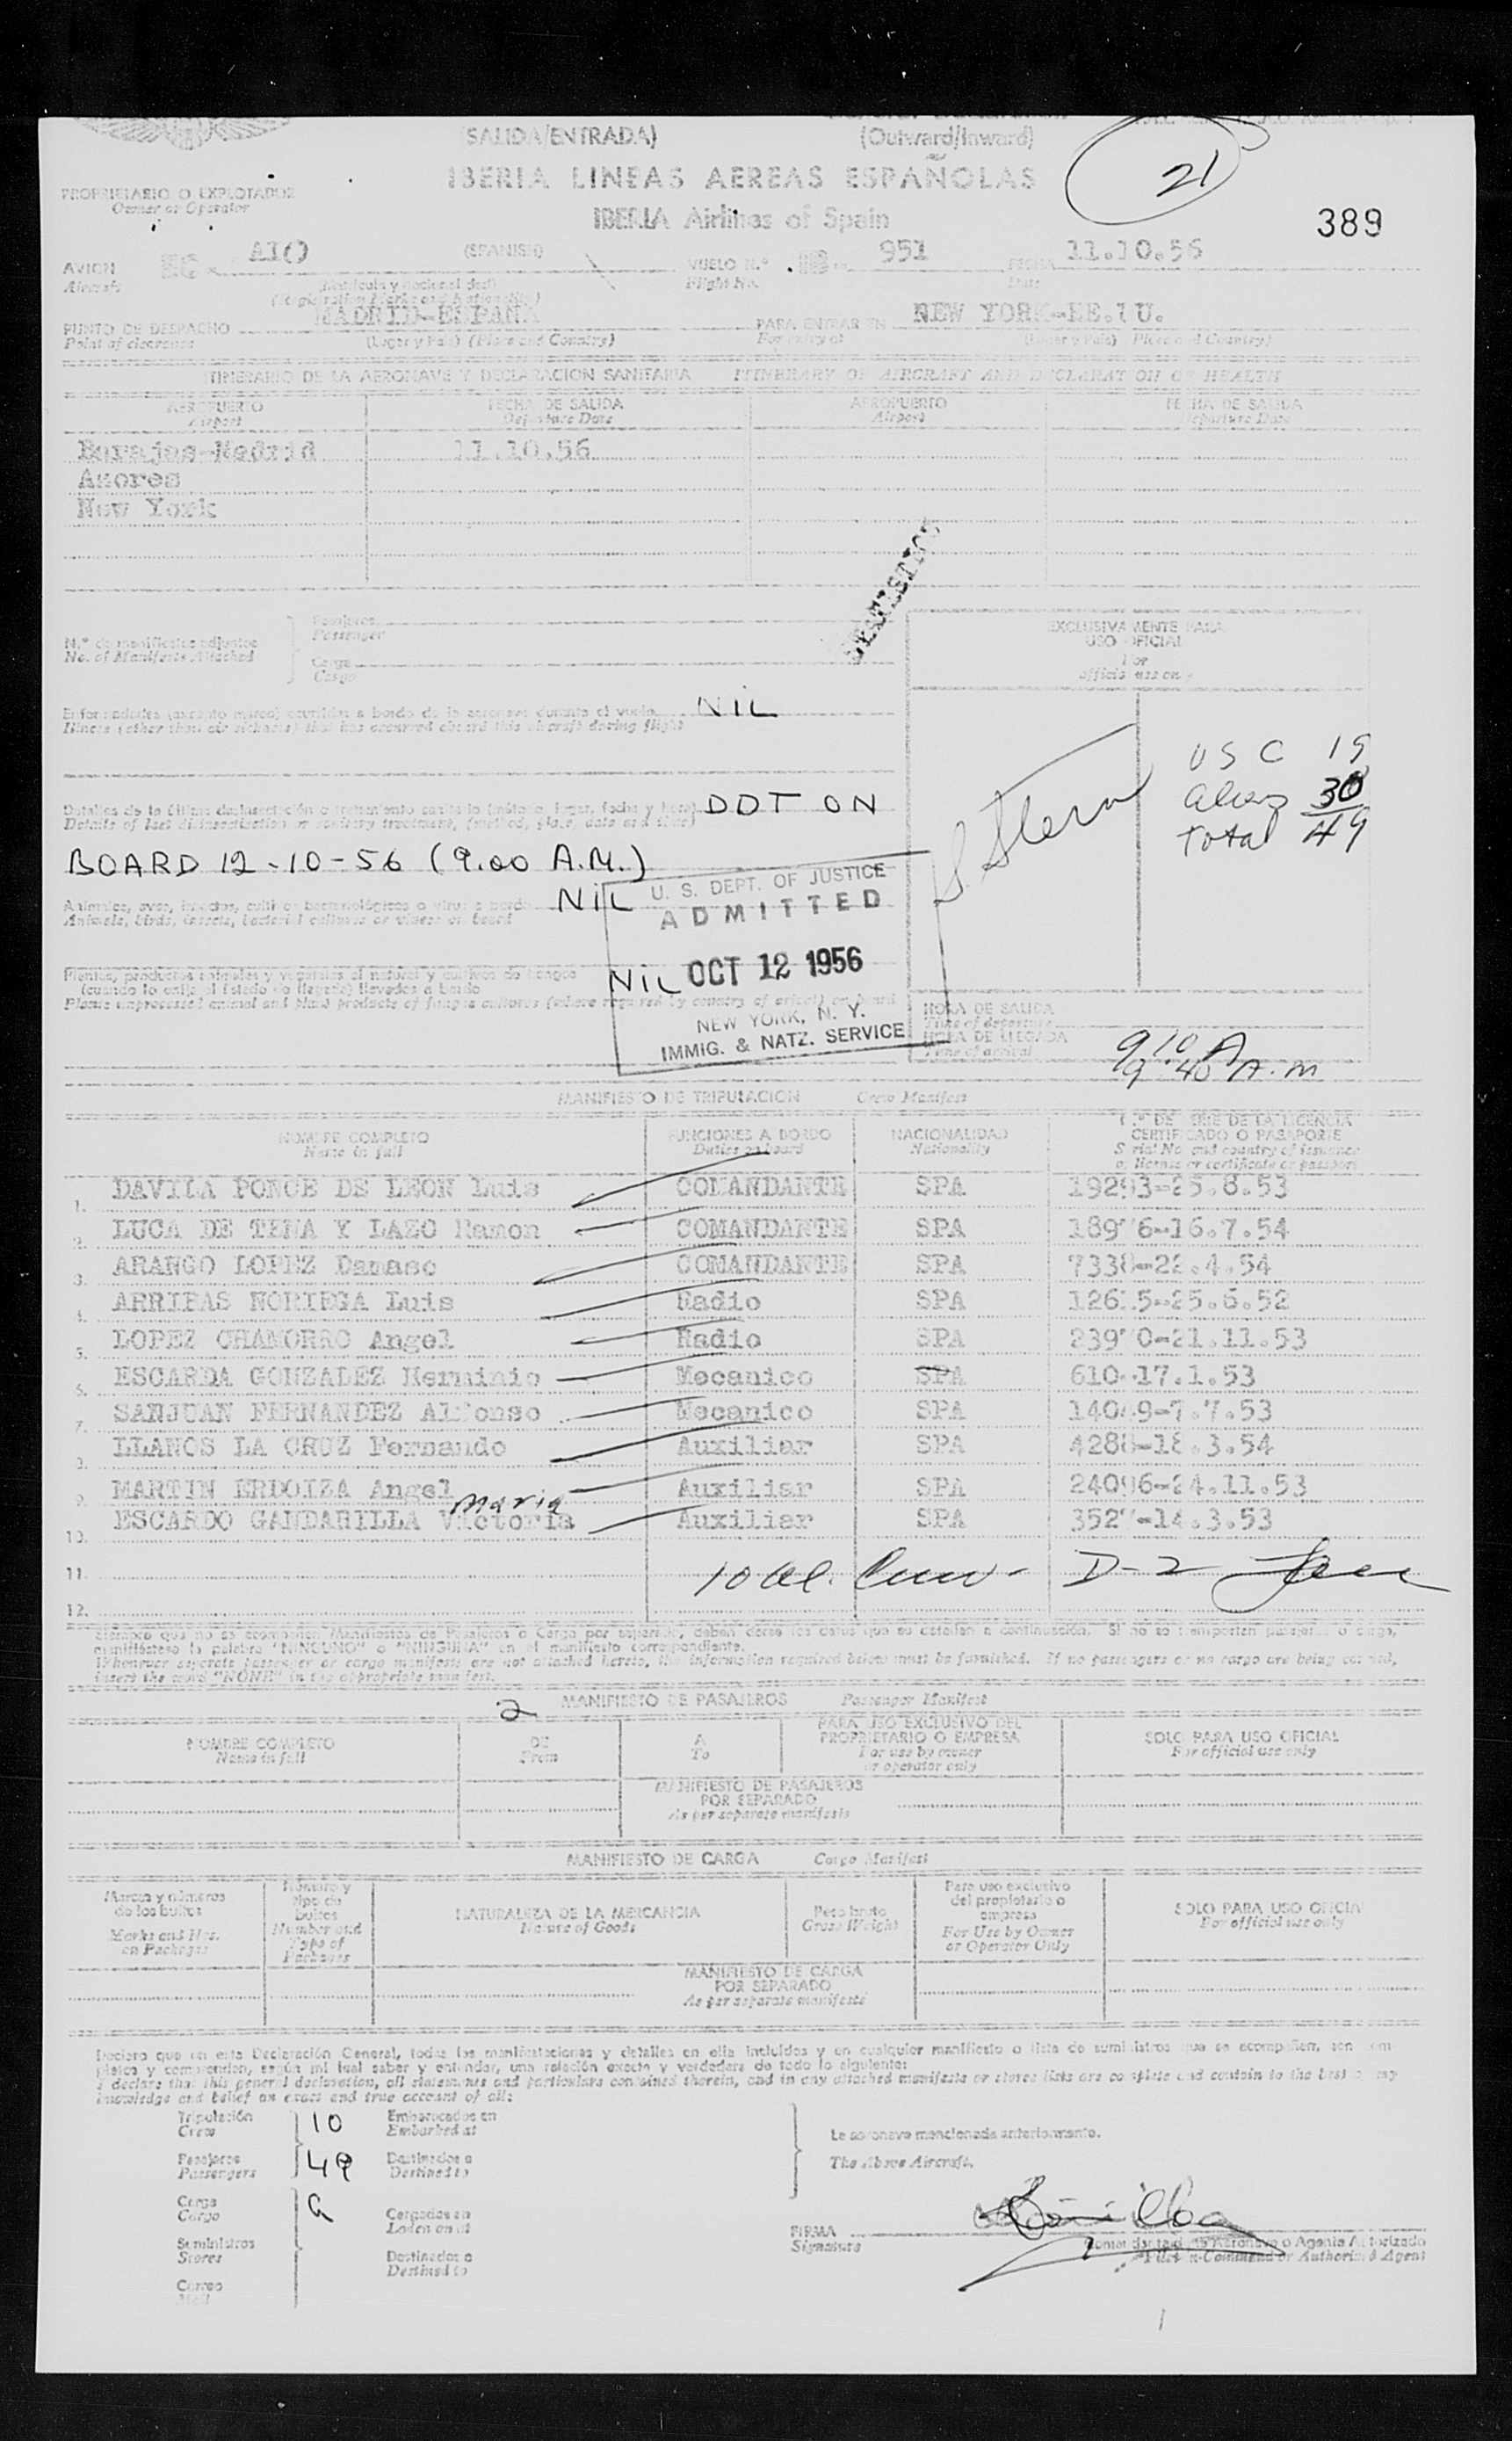 (SALIDA/ENTRADA) (Outward/Inward)
21
IBERIA LINEAS AEREAS ESPAÑOLAS
PROPRIETARIO O EXPLOTADOR
Owner or Operator
IBERIA Airlines of Spain
389
AVION EC- AIO (SPANISH) VUELO N.º IB- 951 FECHA 11.10.56
Aircraft Flight No. Date
MADRID-ESPAÑA NEW YORK-EE.UU.
PUNTO DE DESPACHO PARA ENTRAR EN
Point of clearance (Lugar y País) (Place and Country) For entry at (Lugar y País) (Place and Country)
ITINERARIO DE LA AERONAVE Y DECLARACION SANITARIA ITINERARY OF AIRCRAFT AND DECLARATION OF HEALTH
AEROPUERTO FECHA DE SALIDA AEROPUERTO FECHA DE SALIDA
Airport Departure Date Airport Departure Date
Barajas-Madrid 11.10.56
Azores
New York
N.º de manifiestos adjuntos
No. of Manifests Attached
Pasajeros
Passenger
Carga
Cargo
EXCLUSIVAMENTE PARA
USO OFICIAL
For
official use only
Enfermedades (excepto mareo) ocurridas a bordo de la aeronave durante el vuelo NIL
Illness (other than air sickness) that has occurred aboard this aircraft during flight
USC 19
Alien 30
Total 49
S. Stern
DDT ON
Details of last disinsectization or sanitary treatment, (method, place, date and time)
BOARD 12-10-56 (9.00 A.M.)
NIL
Animals, birds, insects, bacterial cultures or viruses on board
U. S. DEPT. OF JUSTICE
ADMITTED
OCT 12 1956
NEW YORK, N. Y.
IMMIG. & NATZ. SERVICE
NIL
HORA DE SALIDA
Time of departure
HORA DE LLEGADA
Time of arrival
9 10 A
9:40 A.m
MANIFIESTO DE TRIPULACION Crew Manifest
NOMBRE COMPLETO FUNCIONES A BORDO NACIONALIDAD
Name in full Duties on board Nationality
CERTIFICADO O PASAPORTE
Serial No. and country of issuance
of license or certificate or passport
1. DAVILA PONCE DE LEON Luis COMANDANTE SPA 19293-25.8.53
2. LUCA DE TENA Y LAZO Ramon COMANDANTE SPA 189 6-16.7.54
3. ARANGO LOPEZ Damaso COMANDANTE SPA 7338-22.4.54
4. ARRIBAS NORIEGA Luis Radio SPA 126 5-25.6.52
5. LOPEZ CHAMORRO Angel Radio SPA 239 0-21.11.53
6. ESCARDA GONZALEZ Herminio Mecanico SPA 610-17.1.53
7. SANJUAN FERNANDEZ Alfonso Mecanico SPA 140 9-7.7.53
8. LLANOS LA CRUZ Fernando Auxiliar SPA 4288-18.3.54
9. MARTIN ERDOIZA Angel Auxiliar SPA 24096-24.11.53
Maria
10. ESCARDO GANDARILLA Victoria Auxiliar SPA 352 -14.3.53
11. 10 al. Crew - D-2
12.
Whenever separate passenger or cargo manifests are not attached hereto, the information required below must be furnished. If no passengers or no cargo are being carried,
insert the word "NONE" in the appropriate manifest.
2
MANIFIESTO DE PASAJEROS Passenger Manifest
NOMBRE COMPLETO DE A PARA USO EXCLUSIVO DEL PROPRIETARIO O EMPRESA SOLO PARA USO OFICIAL
Name in full From To For use by owner or operator only For official use only
MANIFIESTO DE PASAJEROS
POR SEPARADO
As per separate manifests
MANIFIESTO DE CARGA Cargo Manifest
Marcas y números
de los bultos
Marks and Nos.
on Packages
Número y
tipo de
bultos
Number and
Type of
Packages
NATURALEZA DE LA MERCANCIA
Nature of Goods
Peso bruto
Gross Weight
Para uso exclusivo
del propietario o
empresa
For Use by Owner
or Operator Only
SOLO PARA USO OFICIAL
For official use only
MANIFIESTO DE CARGA
POR SEPARADO
As per separate manifests
Declaro que en esta Declaración General, todas las manifestaciones y detalles en ella incluidos y en cualquier manifiesto o lista de suministros que se acompañen, son
I declare that this general declaration, all statements and particulars contained therein, and in any attached manifests or stores lists are complete and contain to the best of my
knowledge and belief an exact and true account of all:
Tripulación 10 Embarcados en
Crew Embarked at
Le aeronave mencionada anteriormente.
Pasajeros 49 Destinados a
Passengers Destined to
The Above Aircraft.
Carga Cargados en
Cargo Laden on at
FIRMA
Signature
Suministros
Stores
Destinados a
Destined to
Pilot in-Command or Authorized Agent
Correo
Mail